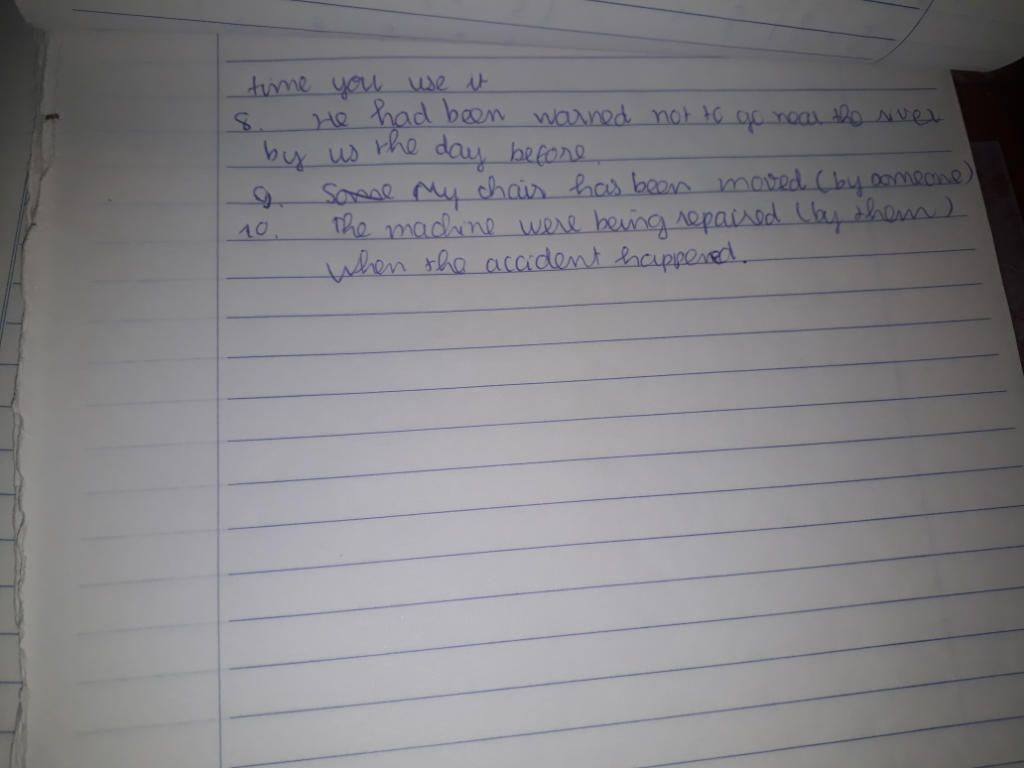 time you use it
8. He had been warned not to go near the river
by us the day before.
9. Some My chair has been moved (by someone)
10. The machine were being repaired (by them)
when the accident happened.